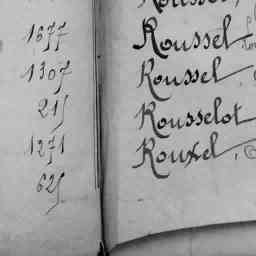 1677
1307
215
1271
625
Roussel
Roussel,
Rousselot
Rouxel,